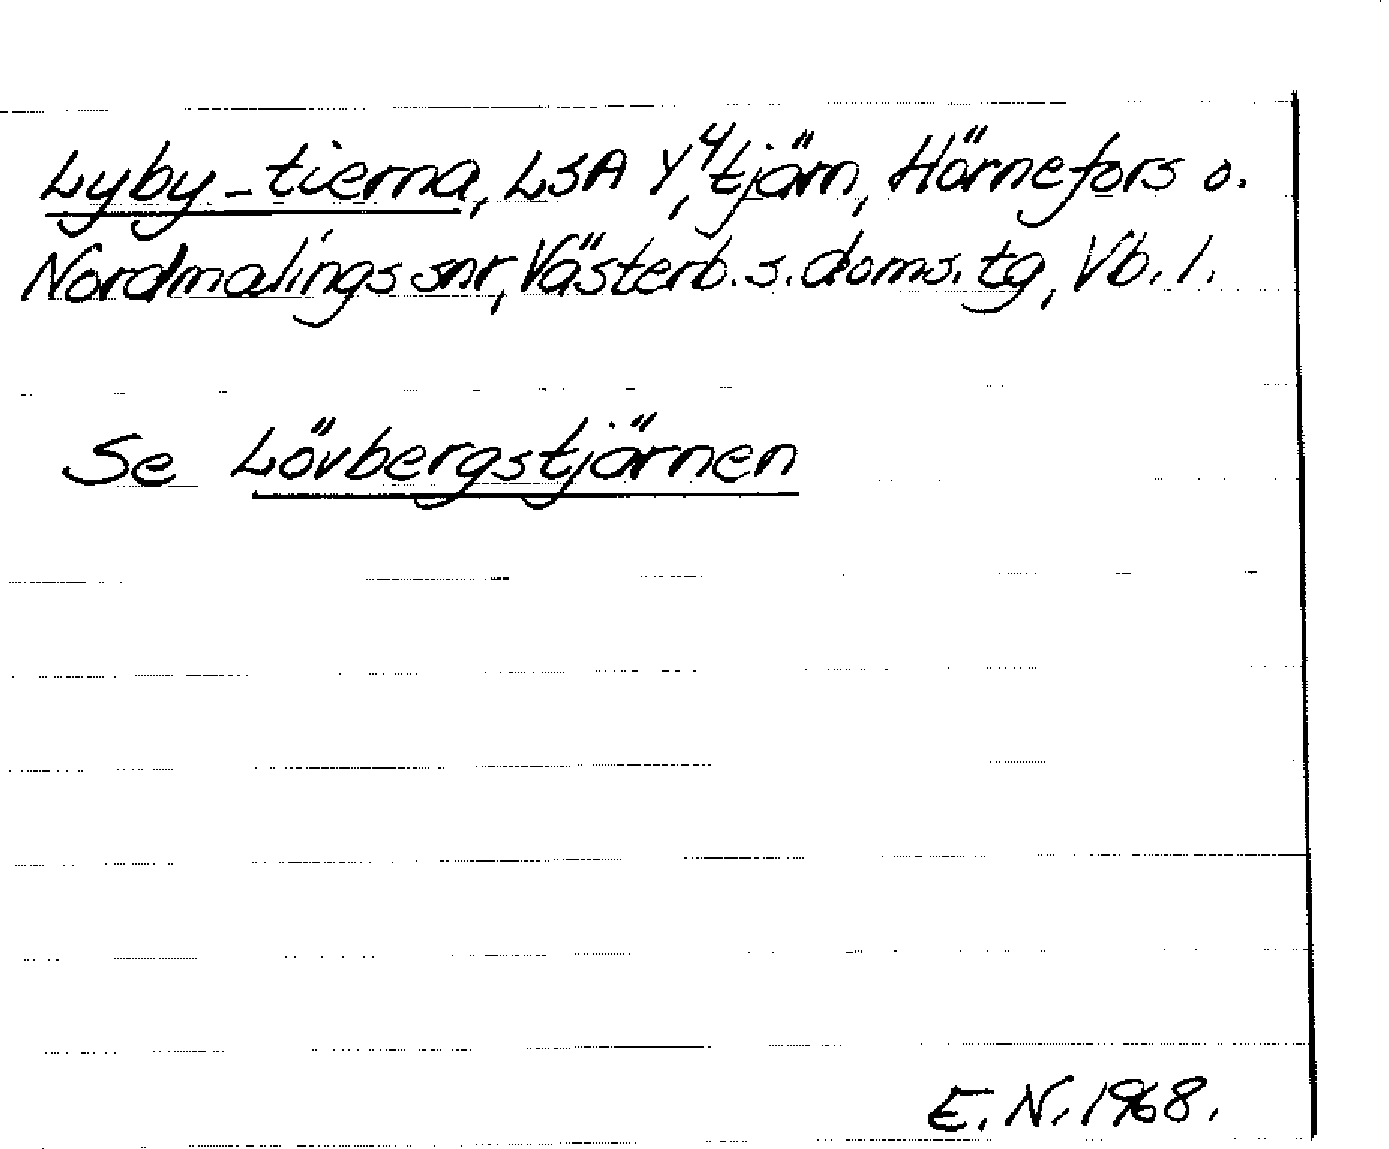 Lyby-tierna, LSA Y⁴, tjärn, Hörnefors o.
Nordmalings snr, Västerb. s. doms. tg, Vb. l.
Se Lövbergstjärnen
E. N. 1968.